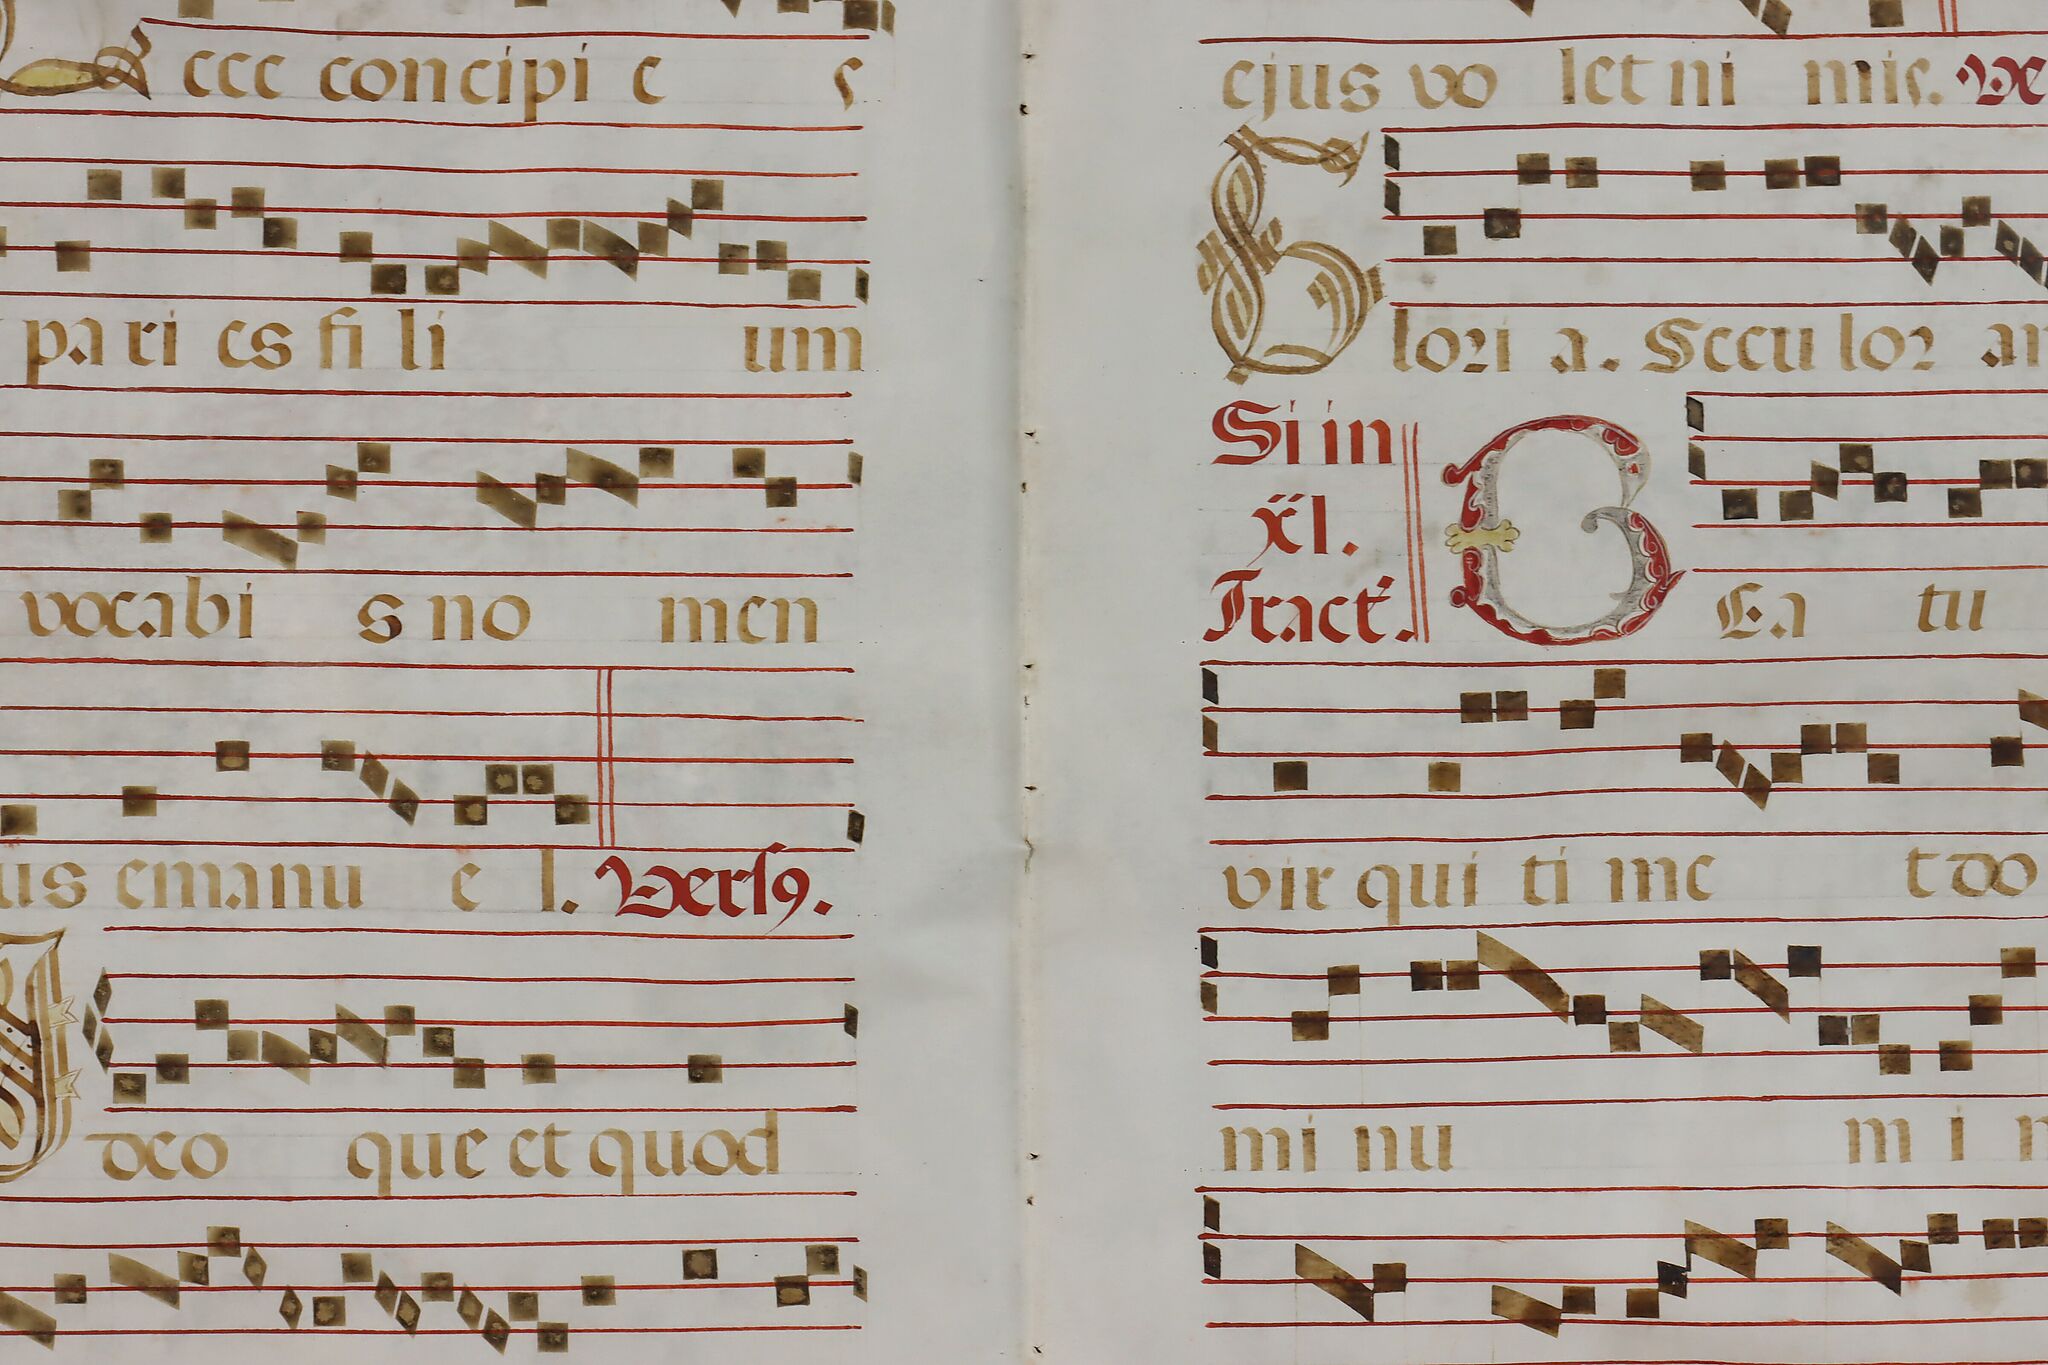 Ecce concipi e s
pa ri es fi li um
vocabi s no men
us emanu e l. Vers9.
Ideo que et quod
ejus vo let ni mis. Ve
Glori a. Seculor am
Si in
xl.
Tract.
BEa tu
vir qui ti me t do
mi nu m i n